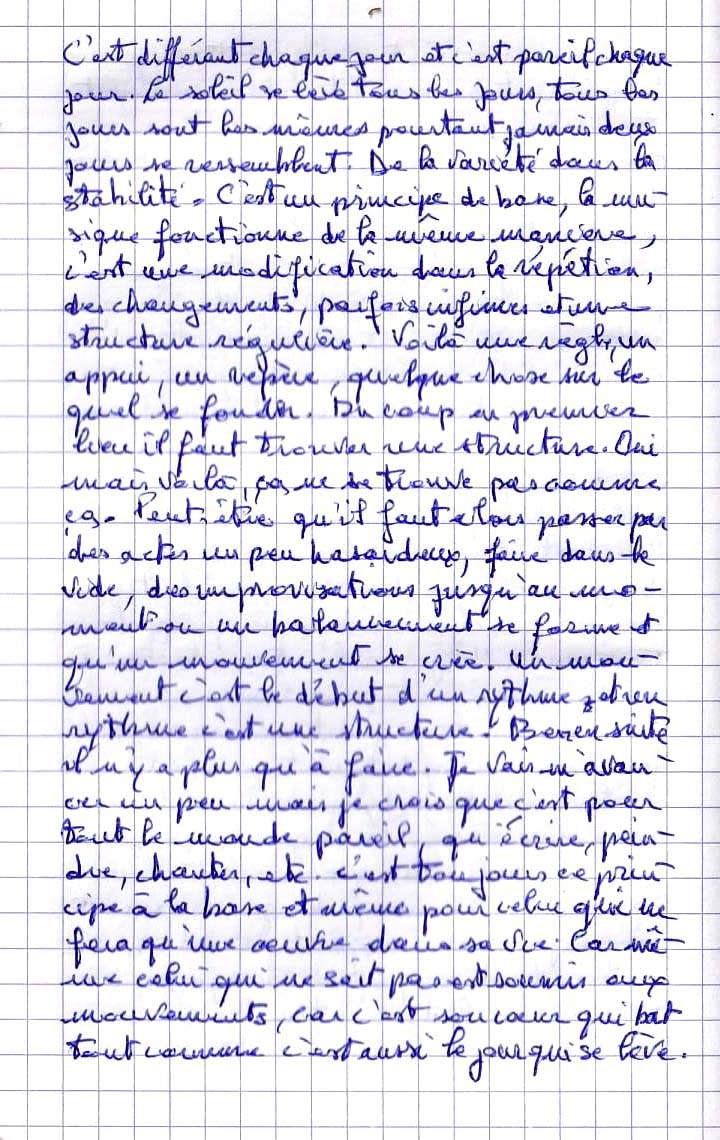 C'est différent chaque jour et c'est pareil chaque
jour. Le soleil se lève tous les jours, tous les
jours sont les mêmes pourtant jamais deux
jours se ressemblent. De la variété dans la
stabilité. C'est un principe de base, la mu-
sique fonctionne de la même manière,
c'est une modification dans la répétion,
des changements, parfois infimes et une
structure régulière. Voilà une règle, un
appui, un repère, quelque chose sur le
quel se fonder. Du coup en premier
lieu il faut trouver une structure. Oui
mais voilà, ça ne se trouve pas comme
ça. Peut-être qu'il faut alors passer par
des actes un peu hasardeux, faire dans le
vide, des improvisations jusqu'au mo-
ment où un balancement se forme et
qu'un mouvement se crée. Un mou-
vement c'est le début d'un rythme et un
rythme c'est une structure. Ben ensuite
il n'y a plus qu'à faire. Je vais m'avan-
cer un peu mais je crois que c'est pour
tout le monde pareil, qu'écrire, pein-
dre, chanter, etc. c'est toujours ce prin-
cipe à la base et même pour celui qui ne
fera qu'une oeuvre dans sa vie. Car mê-
me celui qui ne sait pas est soumis aux
mouvements, car c'est son coeur qui bat
tout comme c'est aussi le jour qui se lève.